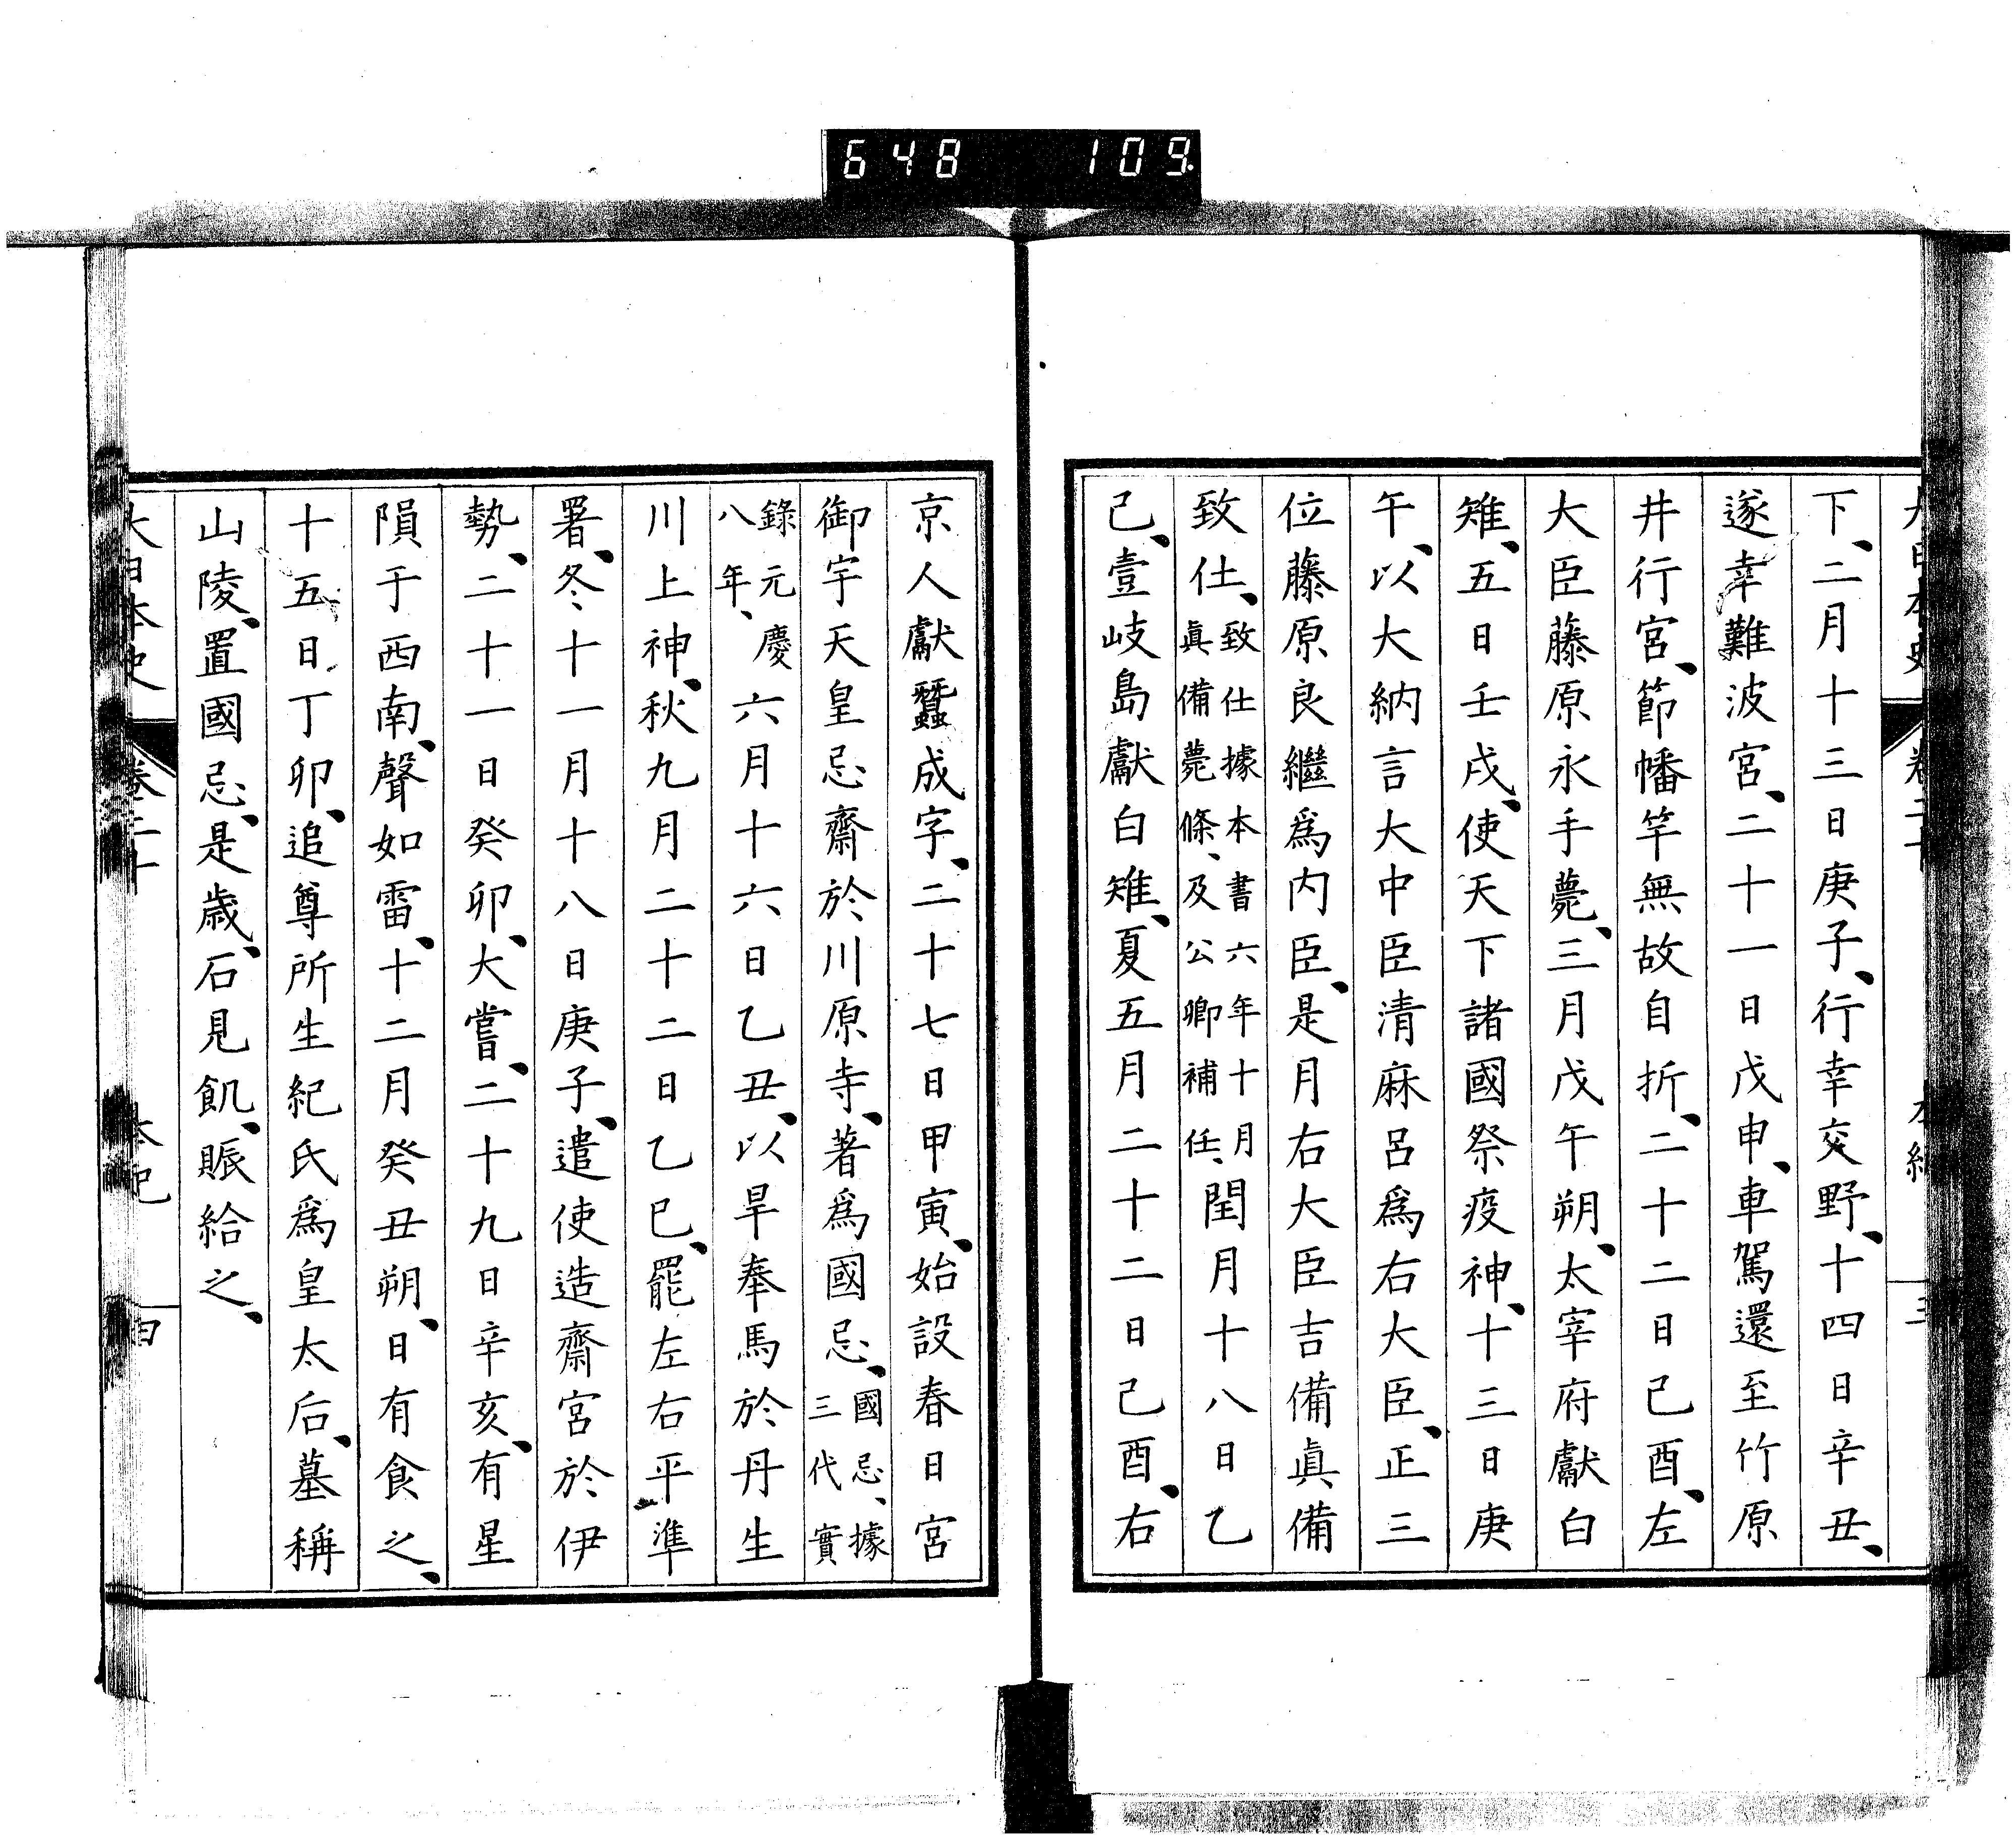 648 109
下、二月十三日庚子、行幸交野、十四日辛丑、
遂幸難波宮、二十一日戊申、車駕還至竹原
井行宮、節幡竿無故自折、二十二日己酉、左
大臣藤原永手薨、三月戊午朔、太宰府獻白
雉、五日壬戌、使天下諸國祭疫神、十三日庚
午、以大納言大中臣清麻呂爲右大臣、正三
位藤原良繼爲内臣、是月右大臣吉備眞備
致仕、致仕據本書六年十月眞備薨條、及公卿補任、閏月十八日乙
己、壹岐島獻白雉、夏五月二十二日己酉、右
京人獻蠶成字、二十七日甲寅、始設春日宮
御宇天皇忌齋於川原寺、著爲國忌、國忌、據三代實
錄元慶八年、六月十六日乙丑、以旱奉馬於丹生
川上神、秋九月二十二日乙巳、罷左右平準
署、冬十一月十八日庚子、遣使造齋宮於伊
勢、二十一日癸卯、大嘗、二十九日辛亥、有星
隕于西南、聲如雷、十二月癸丑朔、日有食之、
十五日丁卯、追尊所生紀氏爲皇太后、墓稱
山陵、置國忌、是歳、石見飢、賑給之、
大日本史 卷二十 本紀 四